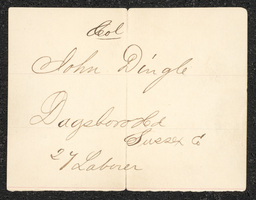 Col
John Dingle
Dagsboro Hd
Sussex Co
27 Laborer